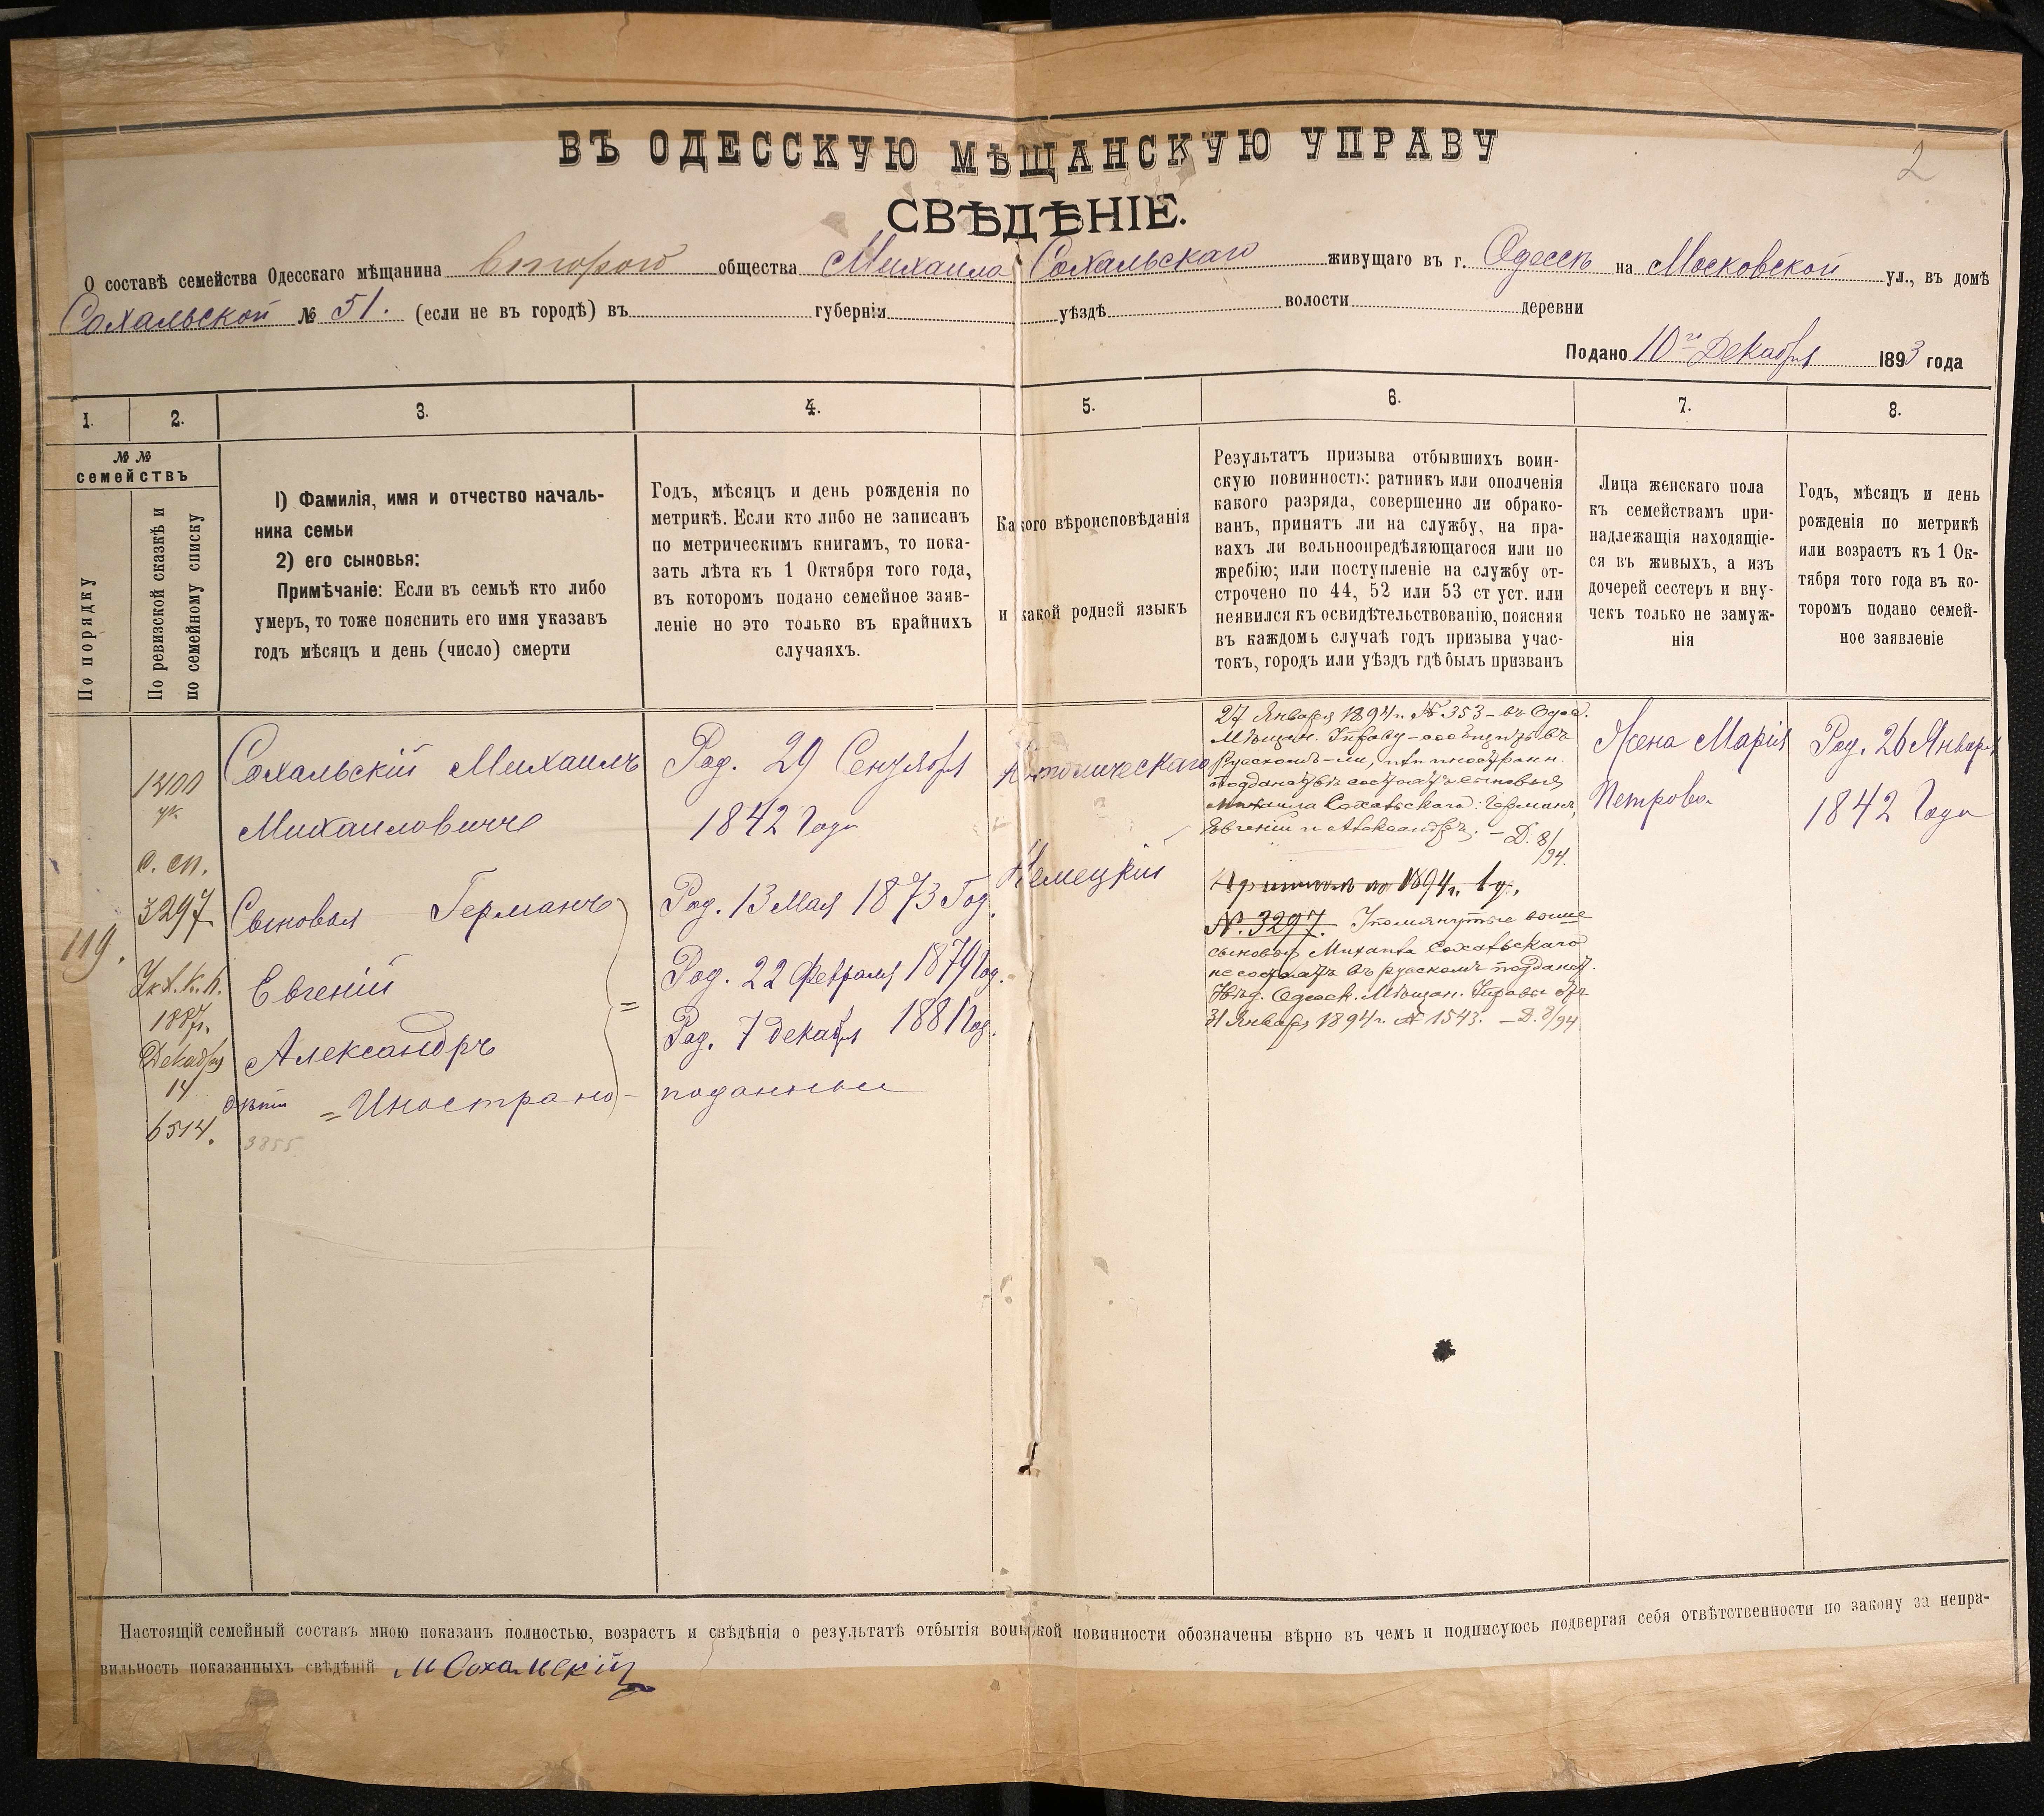 2
ВЪ ОДЕССКУЮ МѢЩАНСКУЮ УПРАВУ
СВѢДѢНІЕ.
О составѣ семейства Одесскаго мѣщанина Второго общества Михаила Сохальскаго живущаго въ г. Одессѣ на Московской ул., въ домѣ
Сохальской № 51. (если не въ городѣ) въ губерніи уѣздѣ волости деревни
Подано 10го Декабря 1893 года
1. 2. 3. 4. 5. 6. 7. 8.
№ №
семействъ
По порядку
По ревизской сказкѣ и
по семейному списку
1) Фамилія, имя и отчество началь-
ника семьи
2) его сыновья:
Примѣчаніе: Если въ семьѣ кто либо
умеръ, то тоже пояснить его имя указавъ
годъ мѣсяцъ и день (число) смерти
Годъ, мѣсяцъ и день рожденія по
метрикѣ. Если кто либо не записанъ
по метрическимъ книгамъ, то пока-
зать лѣта къ 1 Октября того года,
въ которомъ подано семейное заяв-
леніе но это только въ крайнихъ
случаяхъ.
Какого вѣроисповѣданія
и какой родной языкъ
Результатъ призыва отбывшихъ воин-
скую повинность: ратникъ или ополченія
какого разряда, совершенно ли обрако-
ванъ, принятъ ли на службу, на пра-
вахъ ли вольноопредѣляющагося или по
жребію; или поступленіе на службу от-
строчено по 44, 52 или 53 ст уст. или
неявился къ освидѣтельствованію, поясняя
въ каждомъ случаѣ годъ призыва учас-
токъ, городъ или уѣздъ гдѣ былъ призванъ
Лица женскаго пола
къ семействамъ при-
надлежащія находящіе-
ся въ живыхъ, а изъ
дочерей сестеръ и вну-
чекъ только не замуж-
нія
Годъ, мѣсяцъ и день
рожденія по метрикѣ
или возрастъ къ 1 Ок-
тября того года въ ко-
торомъ подано семей-
ное заявленіе
119.
с. сп.
3297.
1887г.
Декабря
14
6514.
Сохальскій Михаилъ
Михаиловичъ
Сыновья Германъ
Евгеній
Александръ
дѣти = Инострано-
3855
Род. 29 Сентября
1842 Года
Род. 13 Мая 1873 Год.
Род. 22 Февраля 1879 Год.
Род. 7 декабря 1881 Год.
поданные
Католическаго
Нѣмецкій
27 Января 1894 г. № 353 – въ Одес.
Мѣщан. Управу – сообщить въ
Русскомъ – ли, или иностранн.
подданствѣ состоятъ сыновья
Михаила Сохальскаго: Германъ,
Евгеній и Александръ. – Д. 8/94.
1894 г. 1 у.
№ 3297. Упомянутые выше
сыновья Михаила Сохальскаго
не состоятъ въ русскомъ подданст.
Увѣд. Одесск. Мѣщан. Управы отъ
31 Января 1894 г. № 1543. – Д. 8/94
Жена Марія
Петрова
Род. 26 Января
1842 Года
Настоящій семейный составъ мною показанъ полностью, возрастъ и свѣдѣнія о результатѣ отбытія воинской повинности обозначены вѣрно въ чемъ и подписуюсь подвергая себя отвѣтственности по закону за непра-
вильность показанныхъ свѣдѣній М Сохальскій